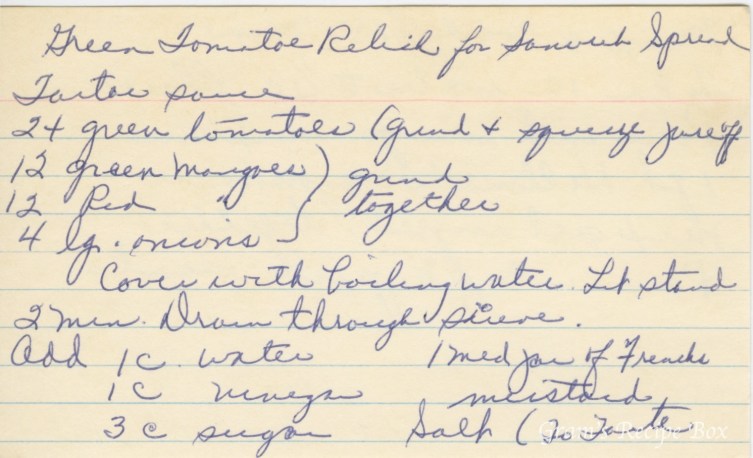 Green Tomatoe Relish for Sanwich Spread
Tartar sauce
24 green tomatoes (grind & squeeze juice off
12 green mangoes ) grind
12 Red " together
4 lg. onions
Cover with boiling water. Let stand
2 min. Drain through sieve.
Add 1 c. water 1 med jar of Frenchs
1 c vinegar mustard
3 c sugar Salt (To Taste
Gram's Recipe Box